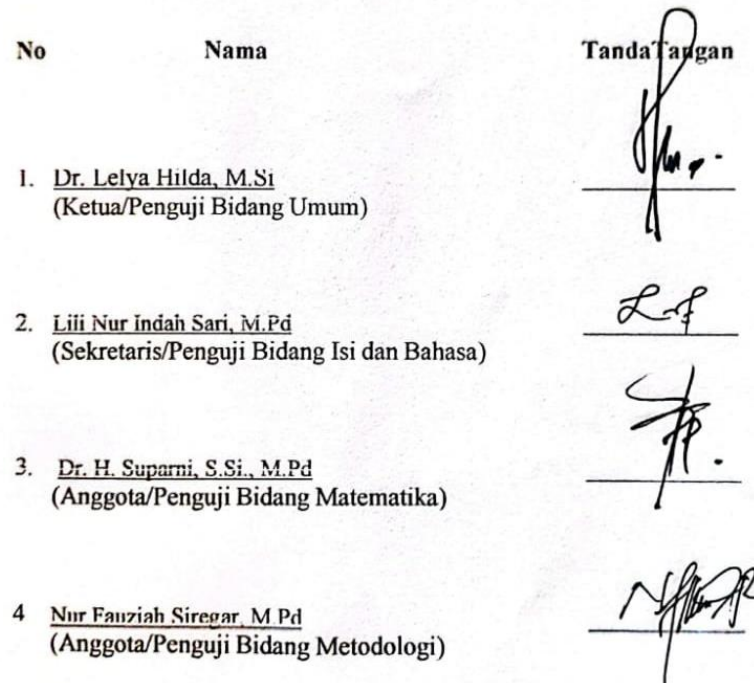 No Nama TandaTangan
1. Dr. Lelya Hilda, M.Si
(Ketua/Penguji Bidang Umum)
2. Lili Nur Indah Sari, M.Pd
(Sekretaris/Penguji Bidang Isi dan Bahasa)
3. Dr. H. Suparni, S.Si., M.Pd
(Anggota/Penguji Bidang Matematika)
4 Nur Fauziah Siregar, M.Pd
(Anggota/Penguji Bidang Metodologi)